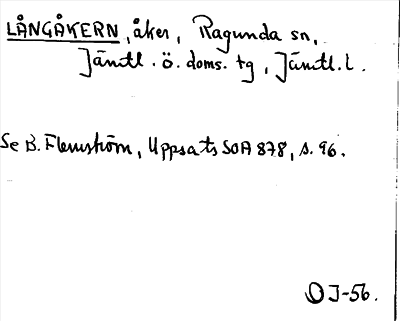 LÅNGÅKERN, åker, Ragunda sn,
Jämtl. ö. doms. tg, Jämtl. l.
Se B. Flemström, Uppsats SOA 878, s. 96.
OJ-56.